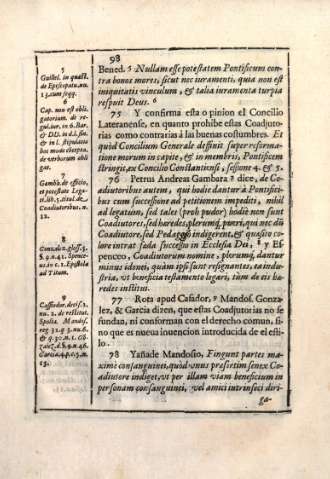 98
Bened. 5 Nullam esse potestatem Pontificum con-
tra bonos mores, sicut nec iuramenti, quia non est
iniquitatis vinculum, & talia iuramenta turpia
respuit Deus. 6
75 Y confirma esta opinion el Concilio
Lateranense, en quanto prohibe estas Coadjuto-
rias como contrarias à las buenas costumbres. Et
quid Concilium Generale definit super reforma-
tione morum in capite, & in membris, Pontificem
stringit, ex Concilio Constantiensi, session 4. & 5.
76 Petrus Andreas Gambara 7 dice, de Coad-
iutoribus autem, qui hodie dantur à Pontifici-
bus cum successione ad petitionem impediti, nihil
ad legatium, sed tales (proh pudor) hodie non sunt
Coadiutores, sed haredes, plerumq; pueri, qui nec dū
Coadiutores, sed Pedagogo indigerent, & quasito co-
lore intrat fada successio in Ecclesia Dei; 8 y Es-
penceo, Coadiutorum nomine, plerumq; dantur
minus idonei, quàm ipsi sunt resignantes, ea indu-
stria, vt beneficia testamento legari, tùm de eis ha-
redes institui.
77 Rota apud Casador, 9 Mandos. Gonza-
lez, & Garcia dizen, que estas Coadjutorias no se
fundan, ni conforman con el derecho comun, si-
no que es nueva inuencion introducida de el esti-
lo.
78 Yañade Mandosio, Fingunt partes ma-
ximè consanguinei, quòd vnus præsertim senex Co-
adiutore indiget, vt per illam viam beneficium in
personam consanguinei, vel amici intrinseci diri-
ga-
5
Guillel. in quæst.
de Episcopatu. nu.
13. cum seqq.
6
Cap. non est obli-
gatorium. de re-
gul. iur. in 6. Bar.
& DD. in d. l. siu.
& in l. stipulatio
hoc modo cōcepta.
de verborum obli-
gat.
7
Gamb. de officio,
et potestate Lega-
ti, lib. 3. titul. de
Coadiutoribus. n.
12.
8
9
Cassador. decis. 2.
nu. 2. de restitut.
Spolia. Mandos.